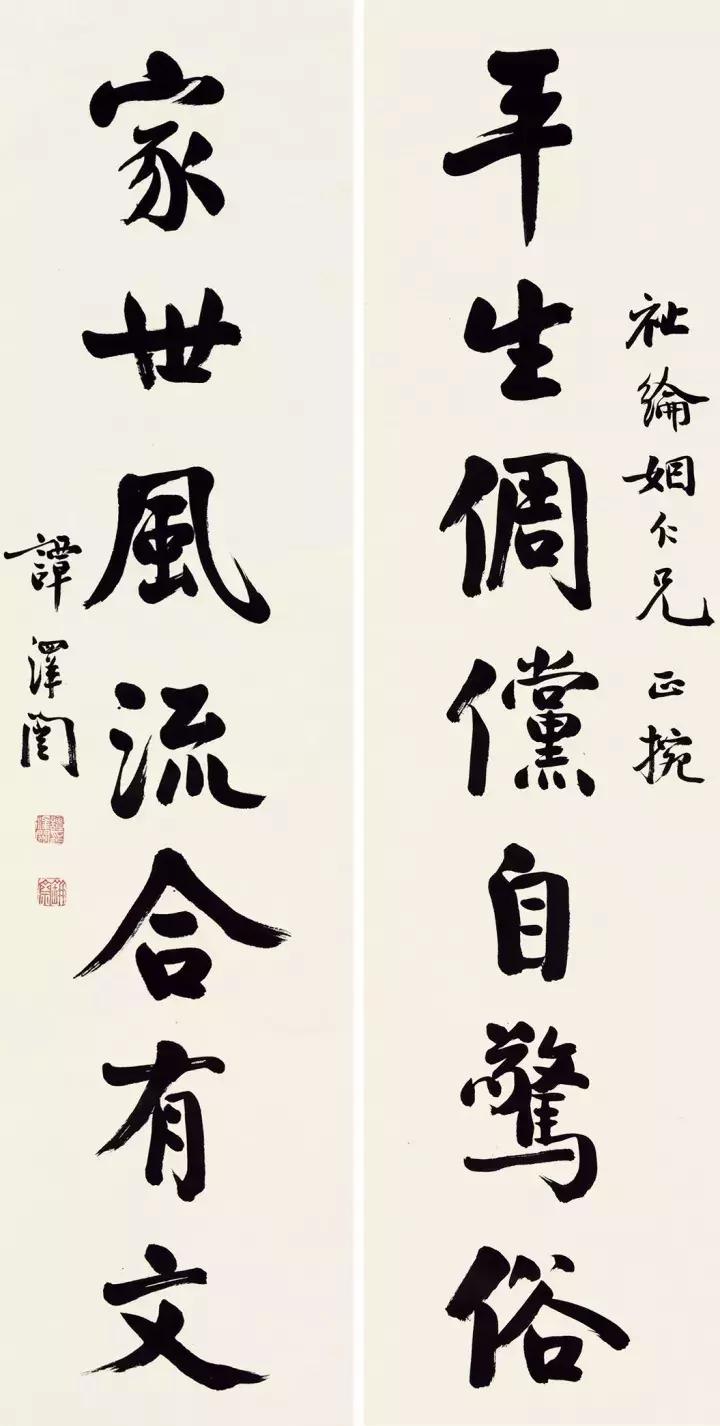 祉綸姻仁兄正捥
平生倜儻自驚俗
家世風流合有文
譚澤闓